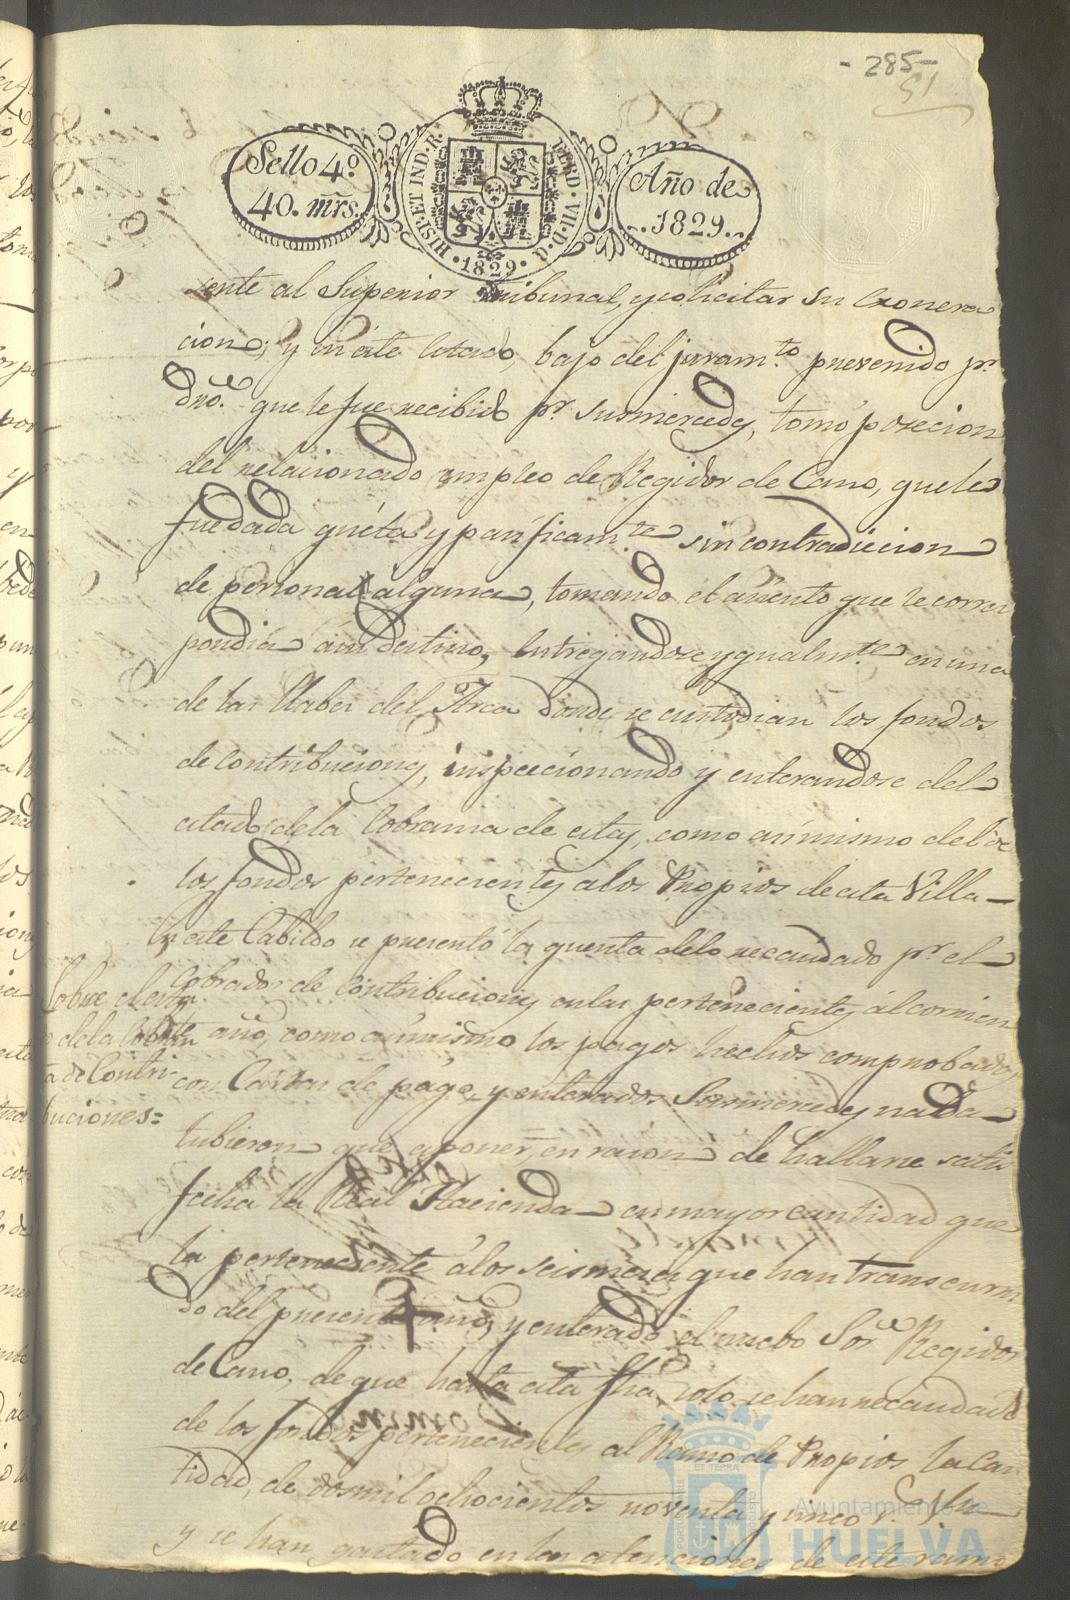 - 285 -
51
Sello 4.º
40. mrs.
HISP. ET IND. R.
FERD. VII. D. G.
1829
Año de
1829.
sente al Superior Tribunal, y solicitar su Exonera
cion, y en este estado, bajo del juram.to prevenido p.r
dro. que le fue recibido p.r susmercedes, tomó posecion
del relacionado empleo de Regidor de Cano, que le
fue dada quieta y pasificam.te sin contradiccion
de persona alguna, tomando el asiento que le corres
pondia á su destino, Entregandose ygualm.te en una
de las llabes del Arca donde se custodian los fondos
de contribuciones, inspeccionando y enterandose del
estado de la Cobransa de estas, como asimismo del de
los fondos pertenecientes a los Propios de esta Villa
En este Cabildo se presentó la quenta delo recaudado p.r el
Cobrador de Contribuciones en las pertenecientes al corrien
te año, como asimismo los pagos hechos comprobados
con Cartas de pago, y enterados Susmercedes nada
tubieron que esponer, en rason de hallarse satis
fecha la Real Hacienda en mayor cantidad que
la perteneciente á los seis meses que han transcurri
do del presente año, y enterado el nuebo Sor. Regidor
de Cano, de que hasta esta fha solo se han recaudado
de los fondos pertenecientes al Ramo de Propios la can
tidad de dos mil ochocientos noventa y cinco r.s Vn
y se han gastado en las atenciones de este ramo
Sobre el esta
do de la Cobran
sa de Contri
buciones=
Ayuntamiento de
HUELVA